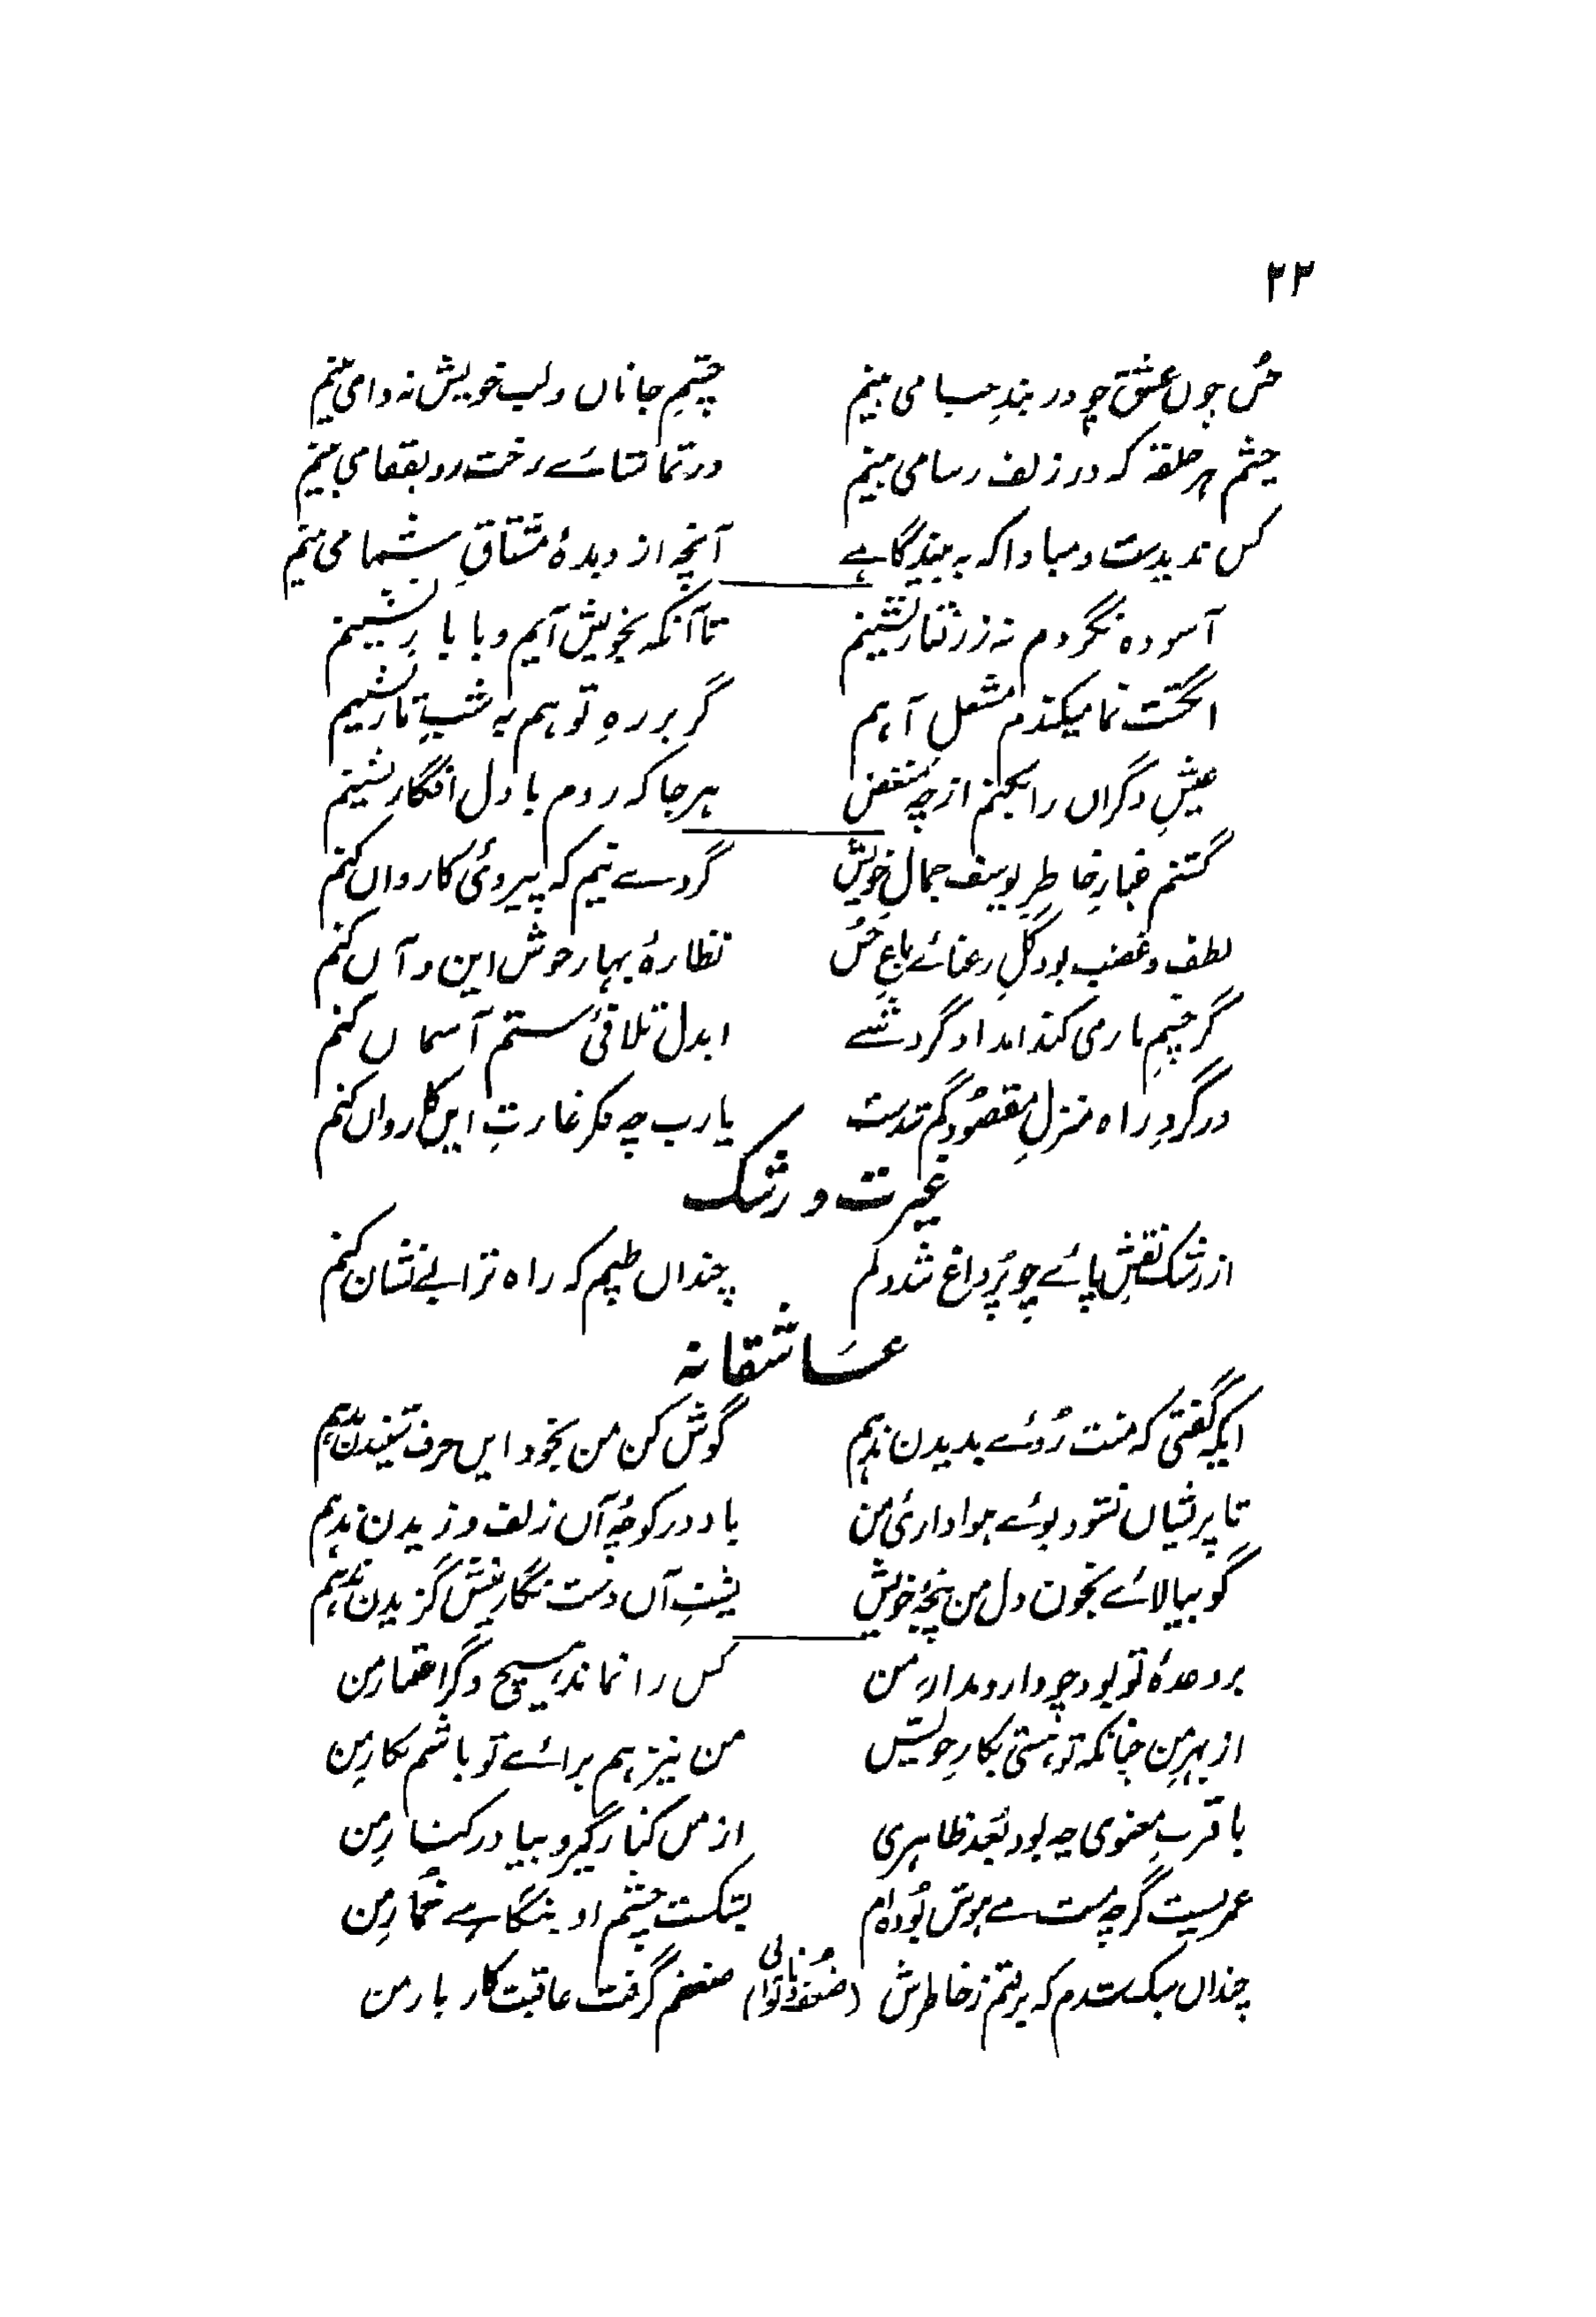 ۲۲
حُسن چوں عشق چو در بندِ حیا می بینم چشمِ جاناں و لبِ خویش نہ وا می بینم
چشم ہر حلقہ کہ در زلف رسا می بینم در تماشائے رخت رو بقفا می بینم
کس ندیدست و مبادا کہ بہ بیند گاہے آنچہ از دیدۂ مشتاقِ شما می بینم
آسودہ نگردم نہ ز رفتار نشینم تا آنکہ بخویش آیم و با یار نشینم
انگشت نما میکندم مشعلِ آہم گر بر رہِ تو ہم بہ شبِ تار نشینم
عیشِ دگراں را بکنم از چہ منغض ہر جا کہ روم با دل افگار نشینم
گشتم غبارِ خاطرِ یوسف جمالِ خویش گردے نیم کہ پیروئ کارواں کنم
لطف و غضب بود گلِ رعنائے باغِ حُسن نظارۂ بہار خوش این و آں کنم
گر چشمِ یار می کند امداد گردشے ابدل تلافئ ستم آسماں کنم
در گردِ راہ منزلِ مقصُود گم شدست یارب چہ فکر غارتِ ایں کارواں کنم
غیرت و رشک
از رشک نقشِ پائے چو پُر داغ شد دلم چنداں طپم کہ راہ ترا بے نشان کنم
عاشقانہ
ایکہ گفتی کہ منت رُوئے بدیدن ندہم گوش کن من بخود ایں حرف شنیدن ندہم
تا پریشاں نشود بوئے ہواداریٔ من باد در کوچۂ آں زلف وزیدن ندہم
گو بیالائے بخون دل من پنجۂ خویش پشتِ آں دست نگارینش گزیدن ندہم
بر وعدۂ تو بود چو دار و مدارِ من کس را نماند ہیچ دگر اعتبار من
از بہرِ من چنانکہ توہستی بکارِ خویش من نیز ہم برائے تو باشم بکارِ من
با قربِ معنوی چہ بود بُعد ظاہری از من کنار گیر و بیا در کنارِ من
عمریست گرچہ مست مے ہوش بُودہ ام بشکست چشم او بنگاہے خمارِ من
چنداں سبک شدم کہ برفتم ز خاطرش (ضُعف و ناتوانی) ضعفم گرفت عاقبت کار بار من